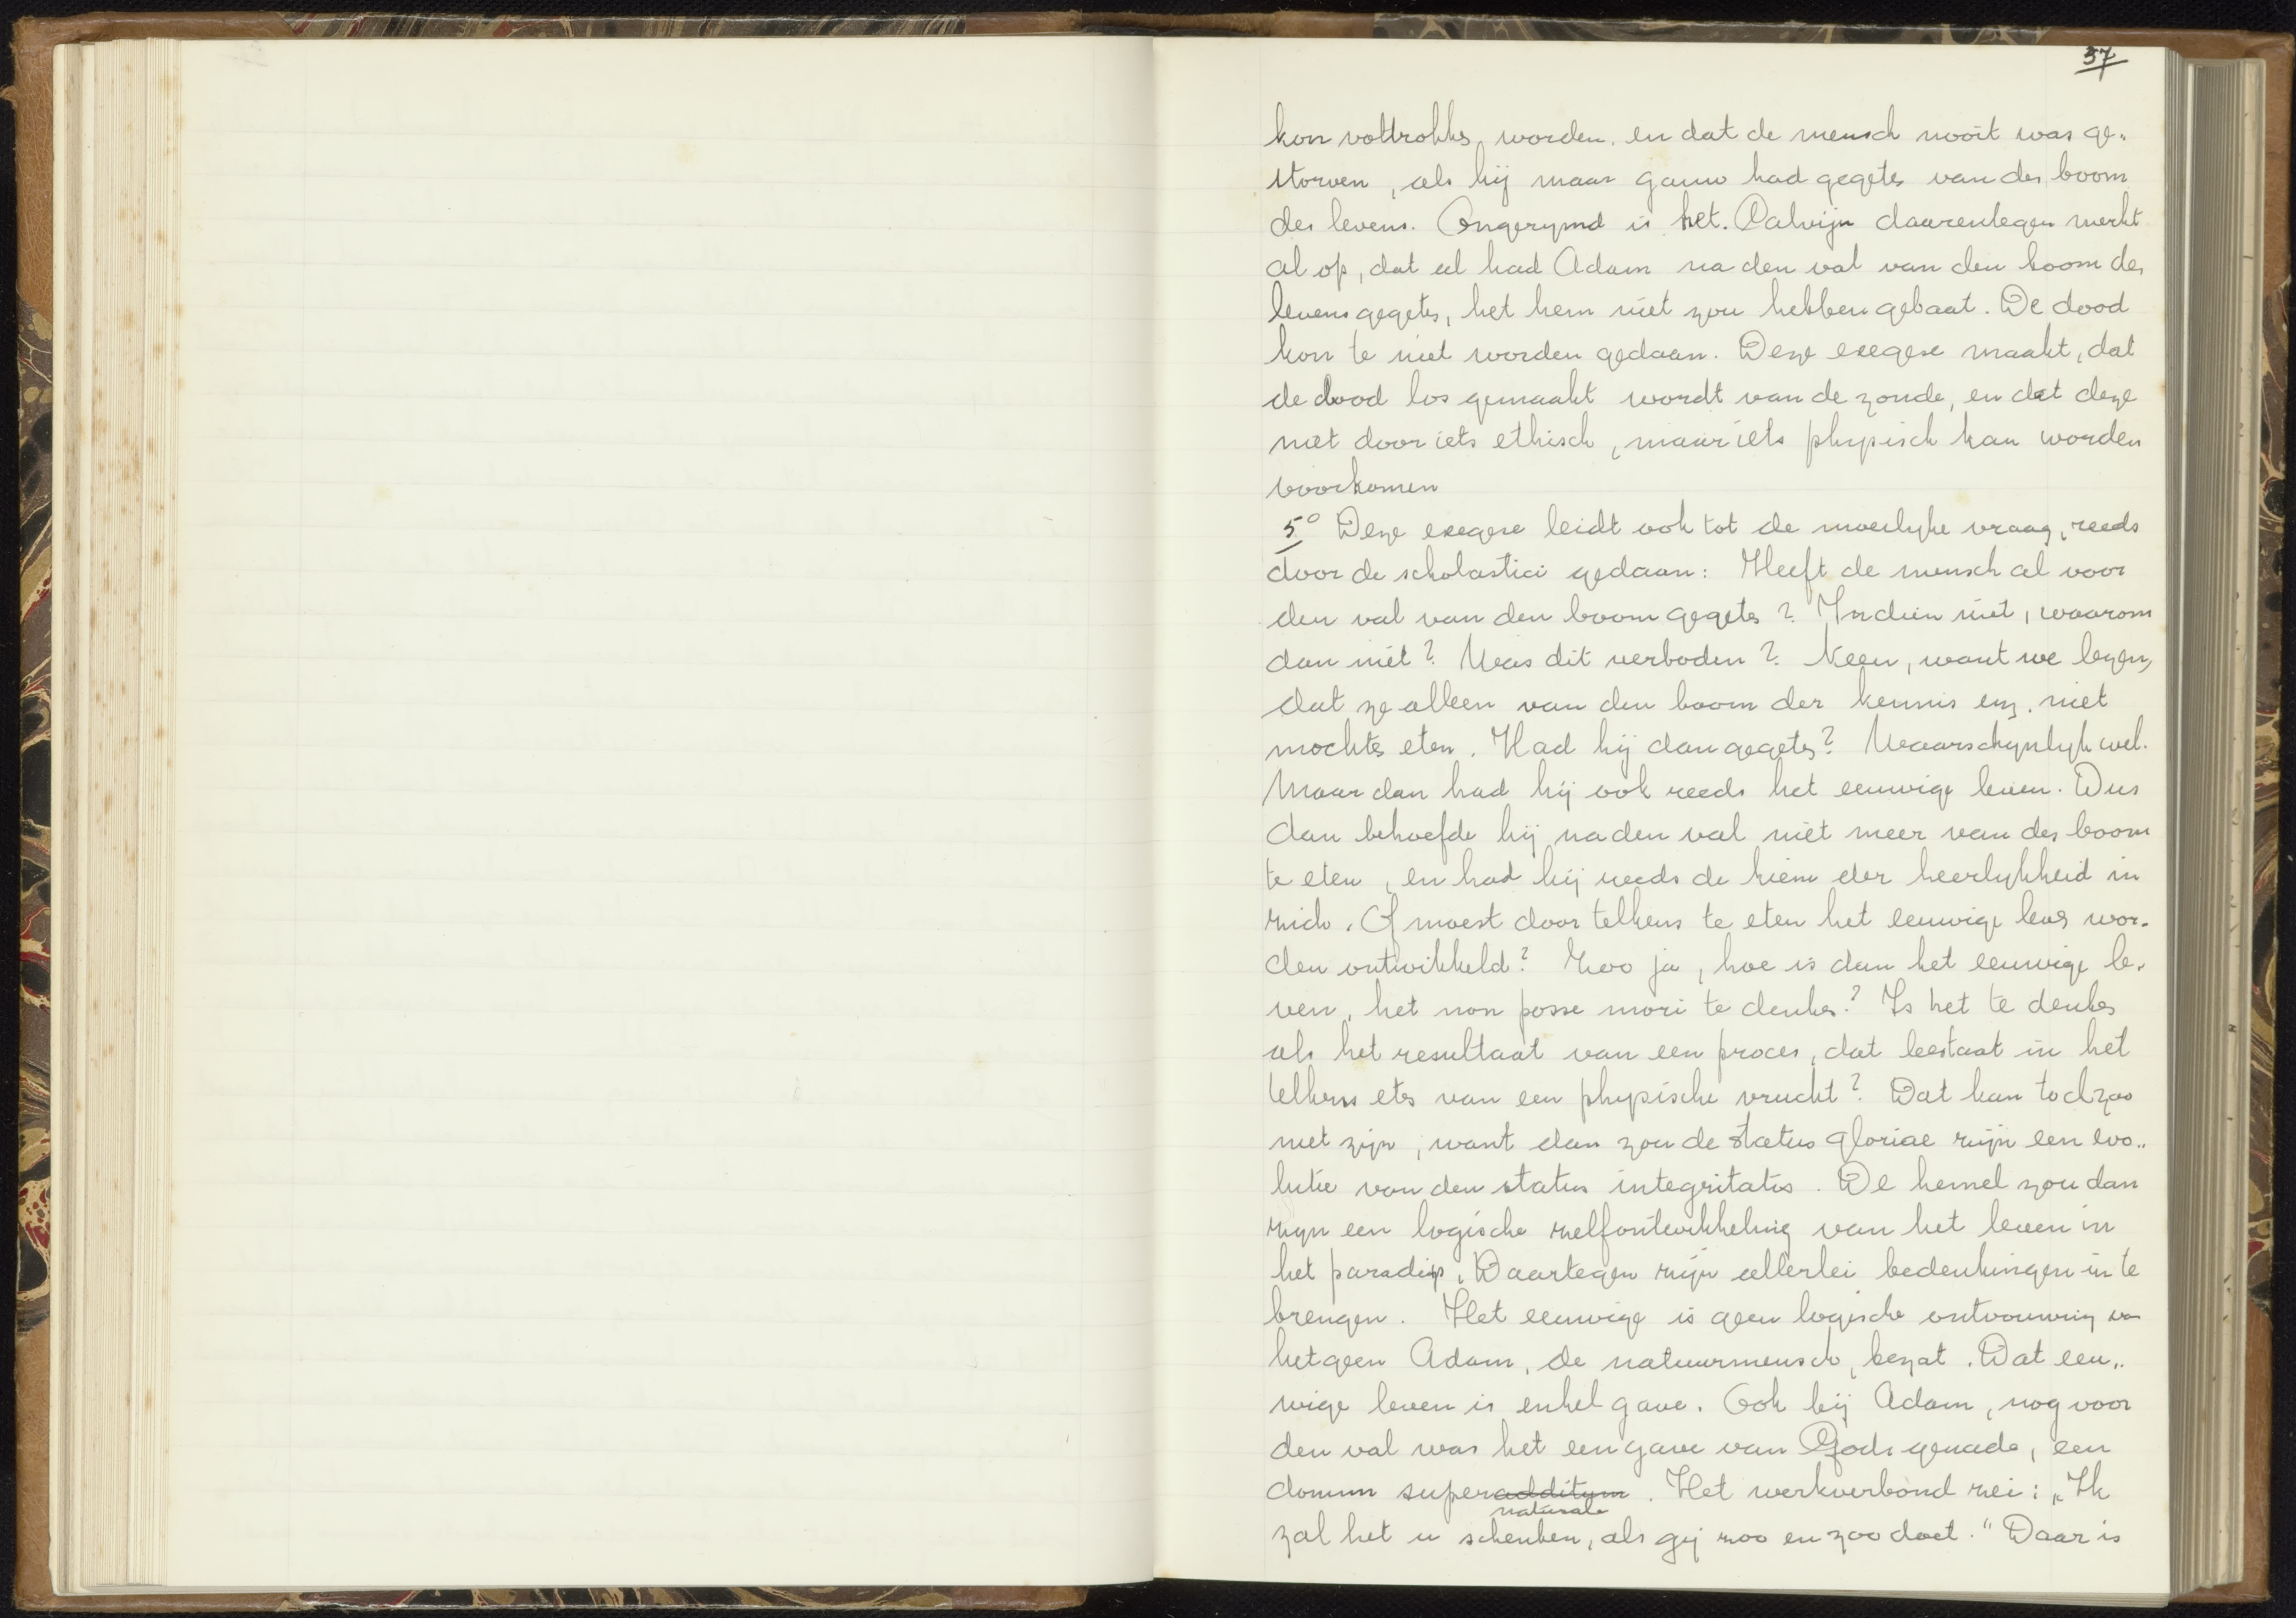 37
kon voltrokken worden. en dat de mensch nooit was ge„
storven, als hij maar gauw had gegeten van den boom
des levens. Ongerymd is het. Calvijn daarentegen merkt
al op, dat al had Adam na den val van den boom des
levens gegeten, het hem niet zou hebben gebaat. De dood
kon te niet worden gedaan. Deze exegese maakt, dat
de dood los gemaakt wordt van de zonde, en dat deze
niet door iets ethisch, maar iets physisch kan worden
voorkomen
5° Deze exegese leidt ook tot de moeilyke vraag, reeds
door de scholastici gedaan: Heeft de mensch al voor
den val van den boom gegeten? Indien niet, waarom
dan niet? Was dit verboden? Neen, want we lezen,
dat ze alleen van den boom der kennis enz. niet
mochten eten. Had hij dan gegeten? Waarschynlyk wel.
Maar dan had hij ook reeds het eeuwige leven. Dus
dan behoefde hij na den val niet meer van den boom
te eten, en had hij reeds de kiem der heerlykheid in
zich. Of moest door telkens te eten het eeuwige leven wor„
den ontwikkeld? Zoo ja, hoe is dan het eeuwige le„
ven, het non posse mori te denken? Is het te denken
als het resultaat van een proces, dat bestaat in het
telkens eten van een physische vrucht? Dat kan toch zoo
niet zijn, want dan zou de status gloriae zijn een evo„
lutie van den status integritatis. De hemel zou dan
zyn een logische zelfontwikkeling van het leven in
het paradijs. Daartegen zijn allerlei bedenkingen in te
brengen. Het eeuwige is geen logische ontvouwing van
hetgeen Adam, de natuurmensch, bezat. Dat eeu„
wige leven is enkel gave. Ook bij Adam, nog voor
den val was het een gave van Gods genade, een
donum superadditum. Het werkverbond zei: „Ik
naturale
zal het u schenken, als gij zoo en zoo doet." Daar is